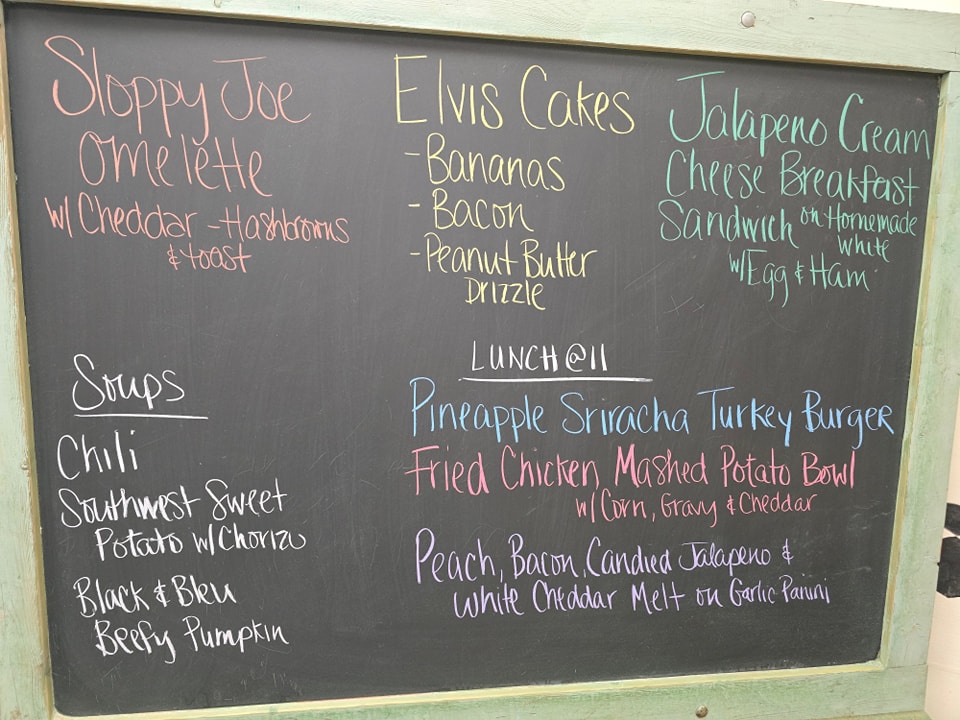 Sloppy Joe
Omelette
w/ Cheddar - Hashbrowns
& toast
Elvis Cakes
- Bananas
- Bacon
- Peanut Butter
Drizzle
Jalapeno Cream
Cheese Breakfast
Sandwich on Homemade
White
w/ Egg & Ham
Soups
Chili
Southwest Sweet
Potato w/ Chorizo
Black & Bleu
Beefy Pumpkin
LUNCH @ 11
Pineapple Sriracha Turkey Burger
Fried Chicken Mashed Potato Bowl
w/ Corn, Gravy & Cheddar
Peach, Bacon, Candied Jalapeno &
White Cheddar Melt on Garlic Panini